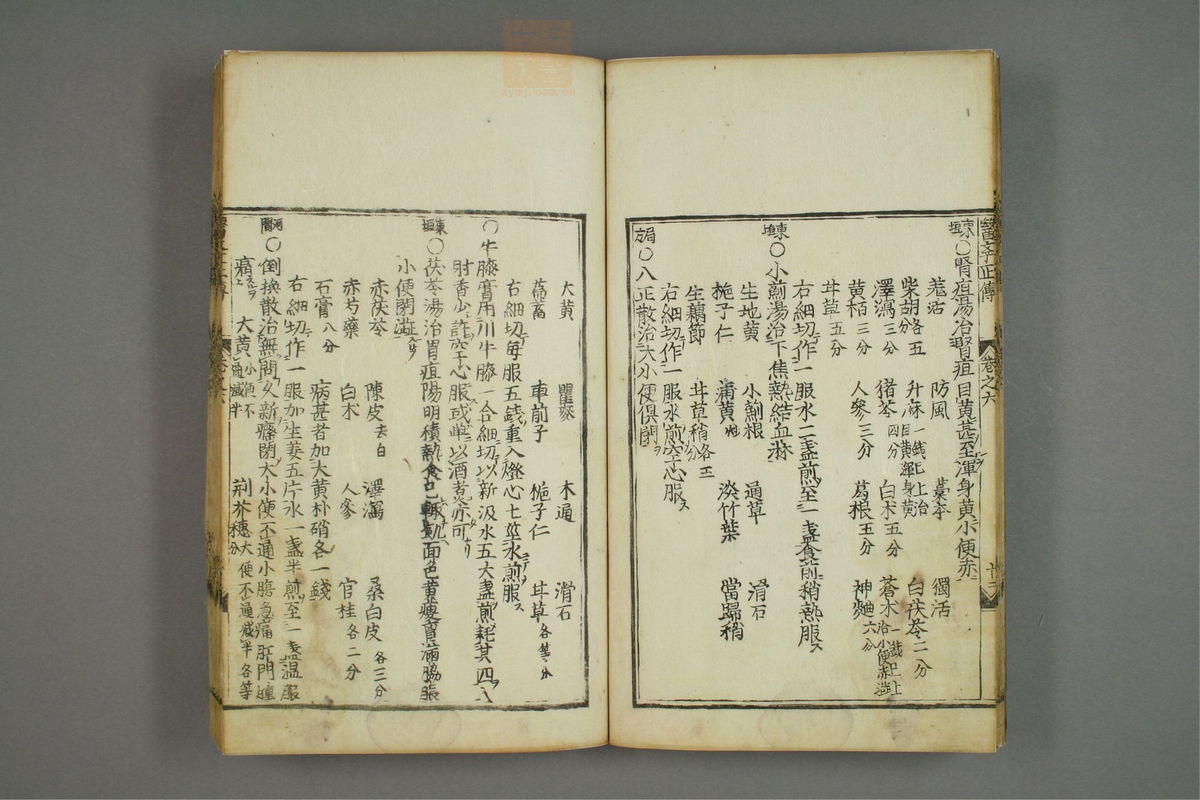 醫學正傳 卷之六
東垣○腎疸湯治腎疸目黃甚至渾身黃小便赤
羗活 防風 藁本 獨活
柴胡各五分 升麻一錢已上治目黃渾身黃 白茯苓二分
澤瀉三分 猪苓四分 白朮五分 蒼朮一錢已上治小便赤澁
黃栢三分 人參三分 葛根五分 神麯六分
甘草五分
右細切作一服水二盞煎至一盞食前稍熱服
東垣○小薊湯治下焦熱結血淋
生地黃 小薊根 通草 滑石
梔子仁 蒲黃炒 淡竹葉 當歸稍
生藕節 甘草稍各五分
右細切作一服水煎空心服
局方○八正散治大小便俱閉
大黃 瞿麥 木通 滑石
萹蓄 車前子 梔子仁 甘草各等分
右細切每服五錢重入燈心七莖水煎服
○牛膝膏用川牛膝一合細切以新汲水五大盞煎耗其四入
麝香少許空心服或單以酒煮亦可
東垣○茯苓湯治胃疸陽明積熱食已輒飢面色黃瘦胷滿脇脹
小便閉澁
赤茯苓 陳皮去白 澤瀉 桑白皮各三分
赤芍藥 白朮 人參 官桂各二分
石膏八分 病甚者加大黃朴硝各一錢
右細切作一服加生姜五片水一盞半煎至一盞溫服
河間○倒換散治無問久新癃閉大小便不通小腹急痛肛門腫
痛 大黃小便不通減半 荊芥穗大便不通減半各等分